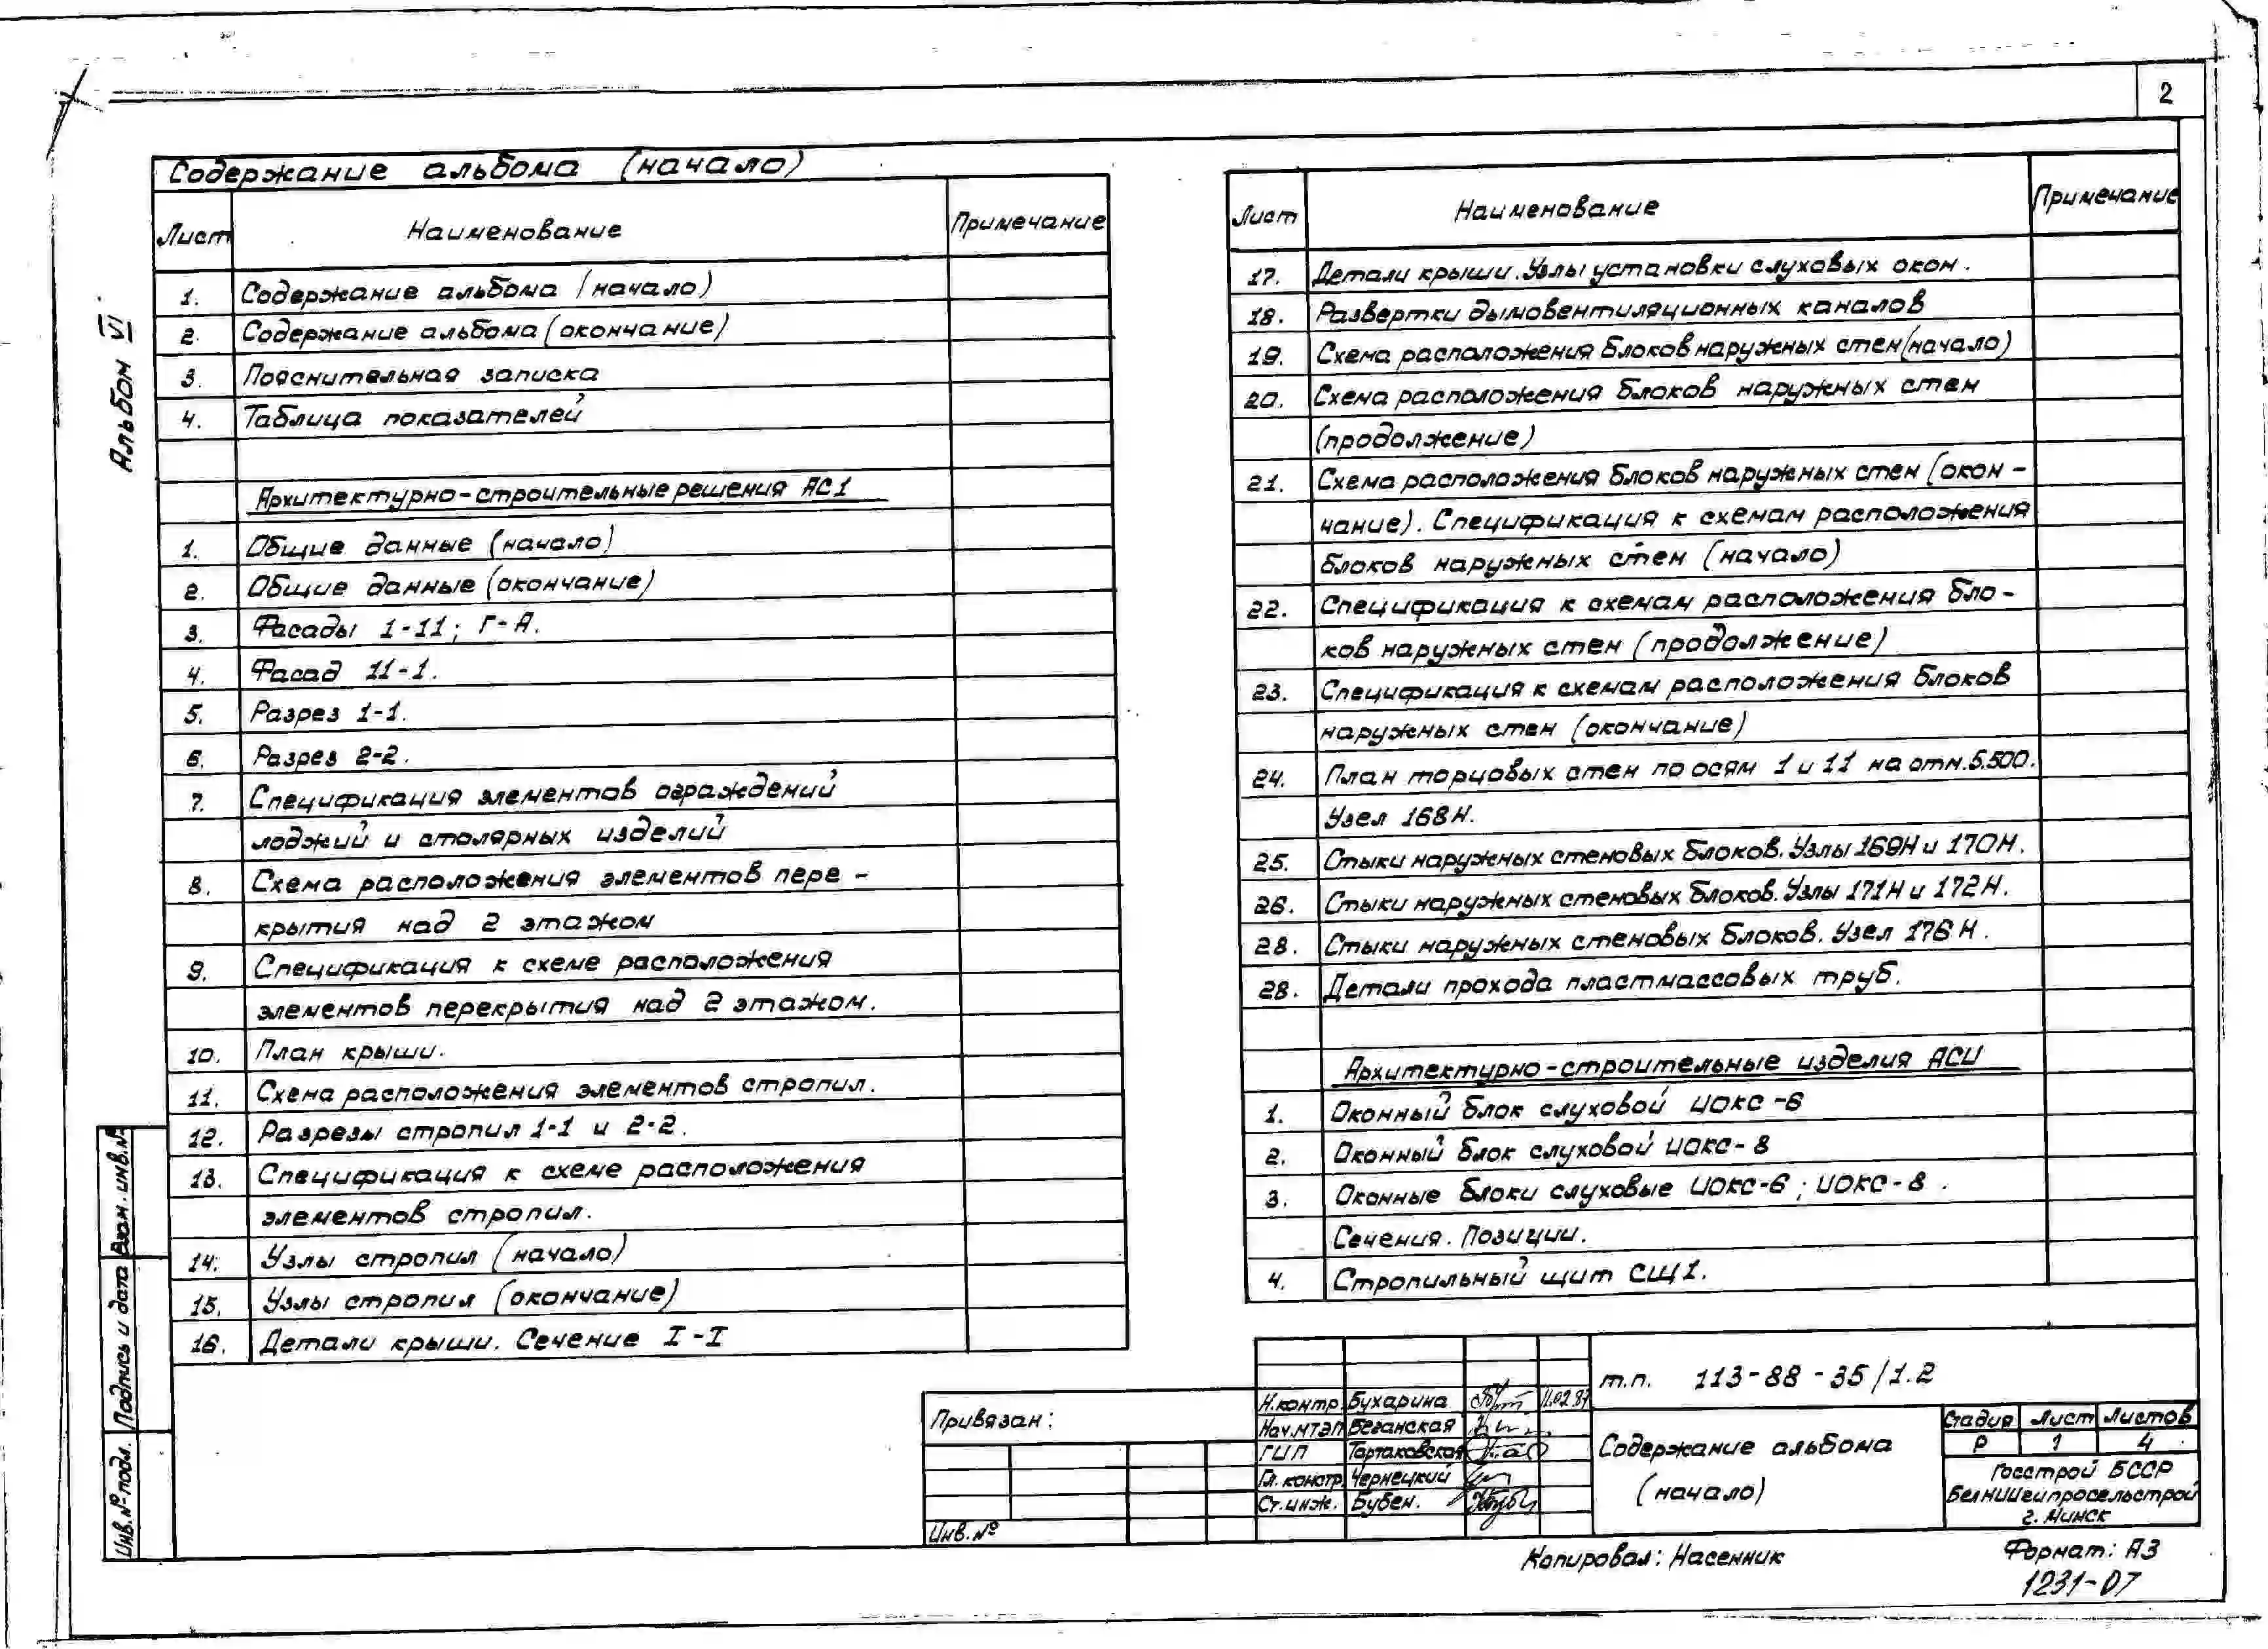 2
Альбом VI
Содержание альбома (начало)
Лист Наименование Примечание
1. Содержание альбома (начало)
2. Содержание альбома (окончание)
3. Пояснительная записка
4. Таблица показателей
Архитектурно-строительные решения АС1
1. Общие данные (начало)
2. Общие данные (окончание)
3. Фасады 1-11; Г-А.
4. Фасад 11-1.
5. Разрез 1-1.
6. Разрез 2-2.
7. Спецификация элементов ограждений
лоджий и столярных изделий
8. Схема расположения элементов пере-
крытия над 2 этажом
9. Спецификация к схеме расположения
элементов перекрытия над 2 этажом.
10. План крыши.
11. Схема расположения элементов стропил.
12. Разрезы стропил 1-1 и 2-2.
13. Спецификация к схеме расположения
элементов стропил.
14. Узлы стропил (начало)
15. Узлы стропил (окончание)
16. Детали крыши. Сечение I-I
Лист Наименование Примечание
17. Детали крыши. Узлы установки слуховых окон.
18. Развертки дымовентиляционных каналов
19. Схема расположения блоков наружных стен (начало)
20. Схема расположения блоков наружных стен
(продолжение)
21. Схема расположения блоков наружных стен (окон-
чание). Спецификация к схемам расположения
блоков наружных стен (начало)
22. Спецификация к схемам расположения бло-
ков наружных стен (продолжение)
23. Спецификация к схемам расположения блоков
наружных стен (окончание)
24. План торцовых стен по осям 1 и 11 на отм. 5.500.
Узел 168Н.
25. Стыки наружных стеновых блоков. Узлы 169Н и 170Н.
26. Стыки наружных стеновых блоков. Узлы 171Н и 172Н.
28. Стыки наружных стеновых блоков. Узел 176Н.
28. Детали прохода пластмассовых труб.
Архитектурно-строительные изделия АСИ
1. Оконный блок слуховой ИОКС-6
2. Оконный блок слуховой ИОКС-8
3. Оконные блоки слуховые ИОКС-6; ИОКС-8.
Сечения. Позиции.
4. Стропильный щит СЩ1.
Взам. инв.№
Подпись и дата
Инв.№ подл.
Привязан:
Инв.№
Н.контр. Бухарина 11.02.87
Нач.МТЭП Беганская
ГИП Тартаковская
Гл.констр. Чернецкий
Ст.инж. Бубен.
т.п. 113-88-35/1.2
Содержание альбома
(начало)
Стадия Лист Листов
Р 1 4
Госстрой БССР
БелНИИгипросельстрой
г. Минск
Копировал: Насенник
Формат: А3
1231-07